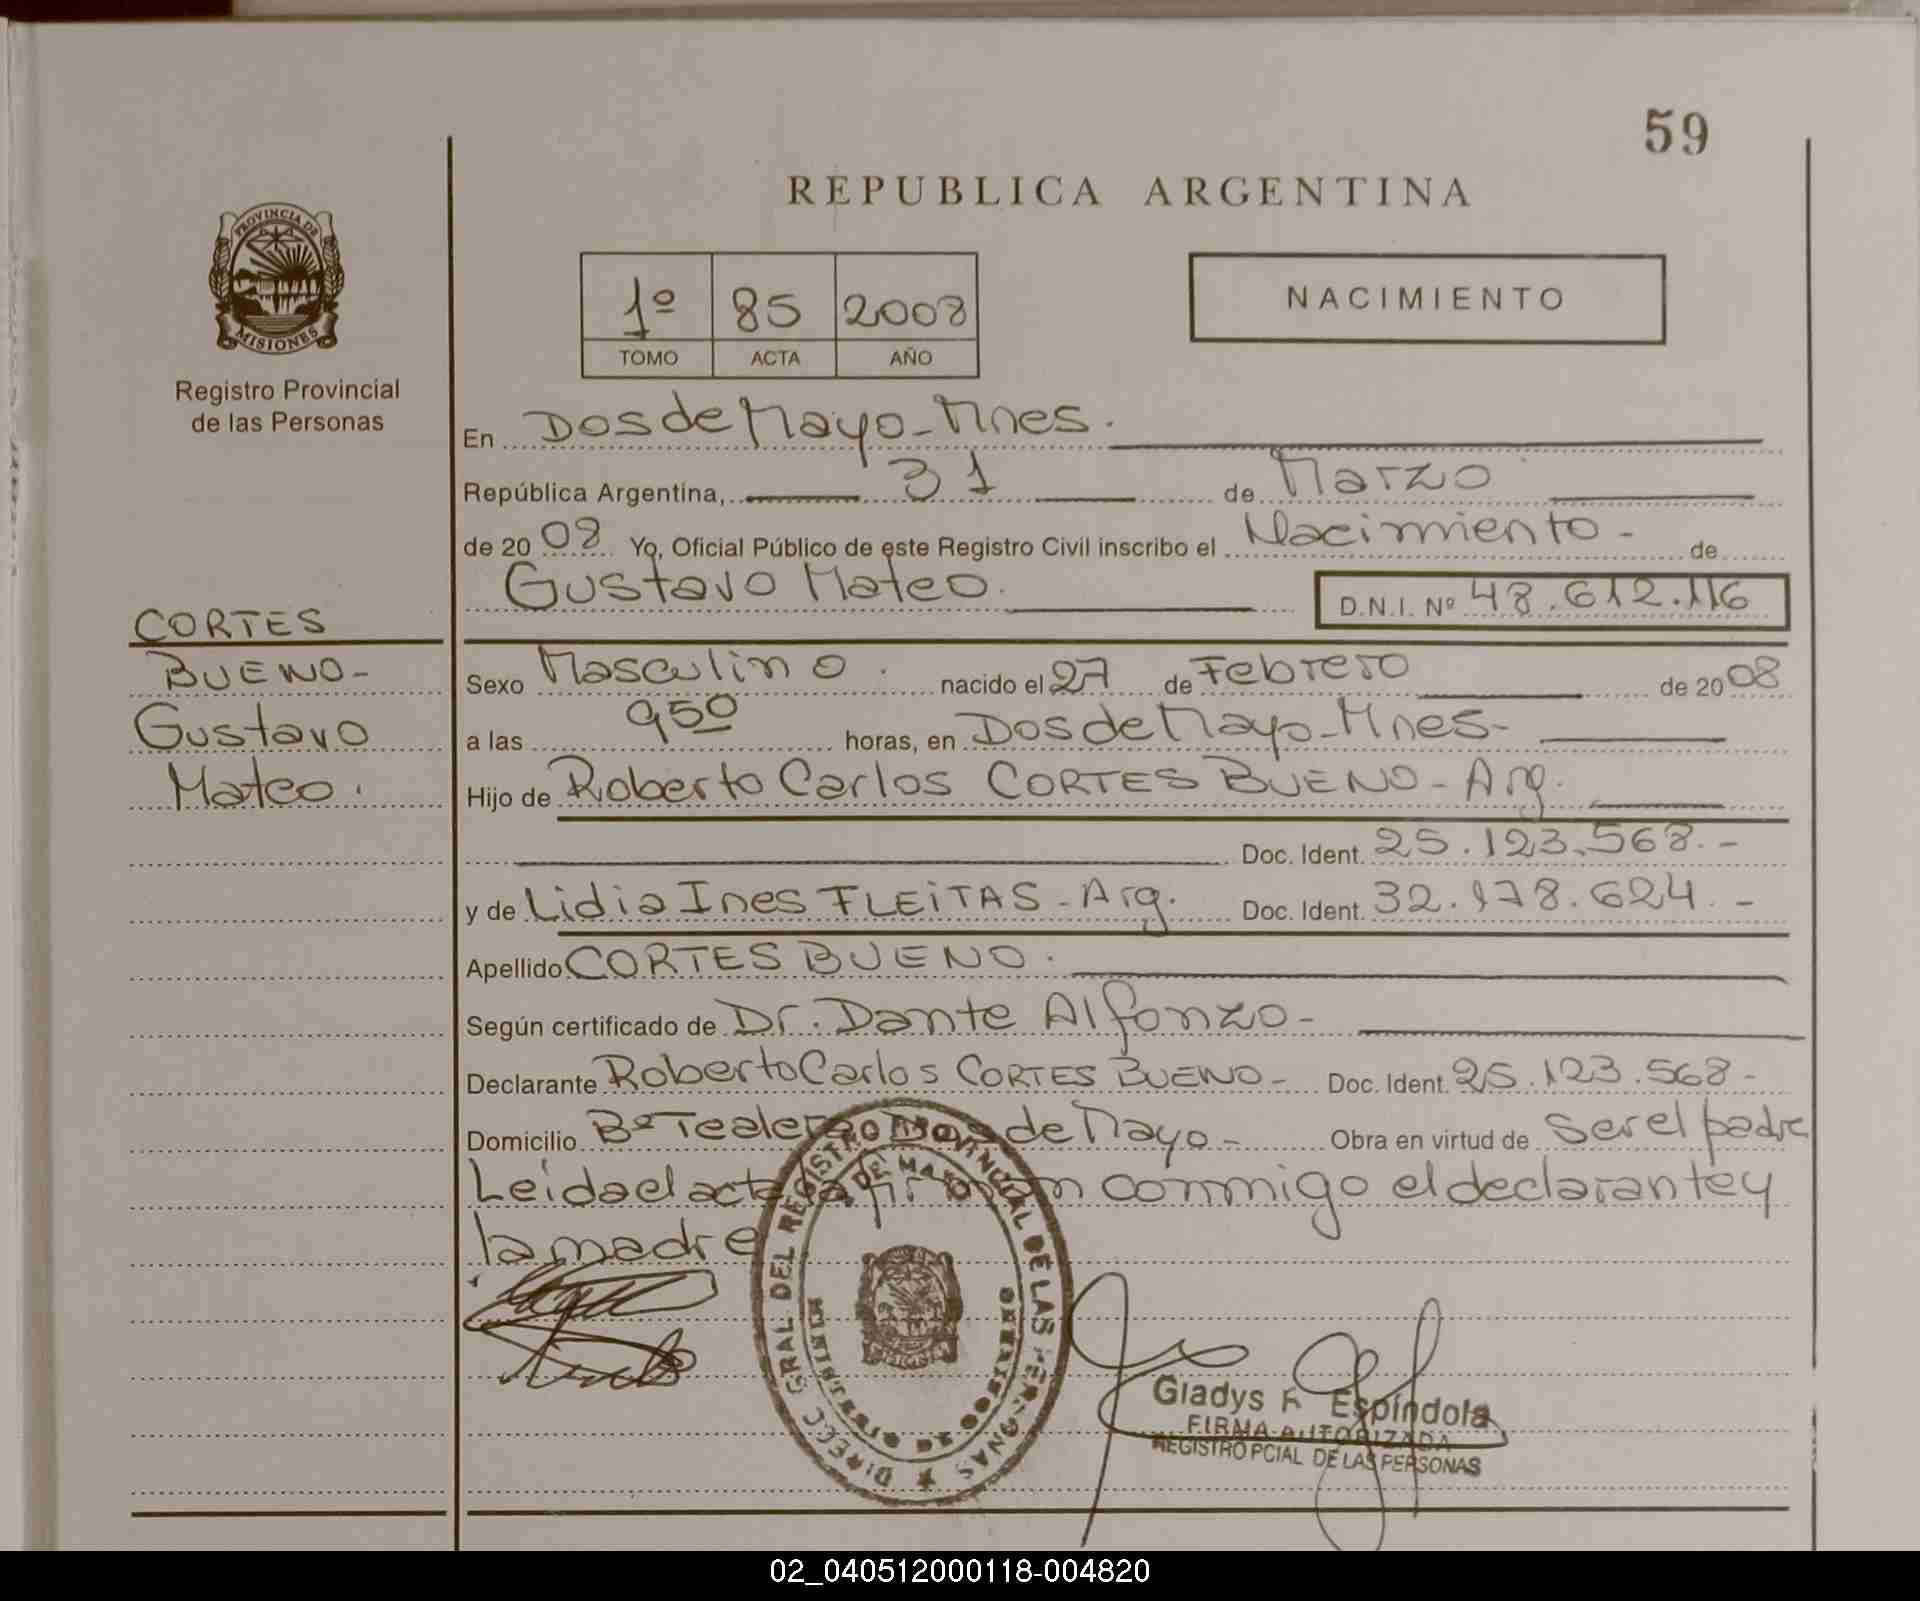 59
REPUBLICA ARGENTINA
PROVINCIA DE
MISIONES
Registro Provincial
de las Personas
1º 85 2008
TOMO ACTA AÑO
NACIMIENTO
En Dos de Mayo - Mnes.
República Argentina, 31 de Marzo
de 20 08 Yo, Oficial Público de este Registro Civil inscribo el Nacimiento - de
Gustavo Mateo. D.N.I. Nº 48.612.116
CORTES
BUENO-
Gustavo
Mateo.
Sexo Masculino. nacido el 27 de Febrero de 20 08
a las 950 horas, en Dos de Mayo - Mnes-
Hijo de Roberto Carlos CORTES BUENO - Arg.
Doc. Ident. 25.123.568.-
y de Lidia Ines FLEITAS - Arg. Doc. Ident. 32.178.624.-
Apellido CORTES BUENO.
Según certificado de Dr. Dante Alfonzo-
Declarante Roberto Carlos CORTES BUENO- Doc. Ident. 25.123.568-
Domicilio Bº Tealera Dos de Mayo- Obra en virtud de ser el padre
Leida el acta firman conmigo el declarante y
la madre
DIRECC GRAL DEL REGISTRO PROVINCIAL DE LAS PERSONAS
DE MAYO
MISIONES
Gladys F. Espíndola
FIRMA AUTORIZADA
REGISTRO PCIAL DE LAS PERSONAS
02_040512000118-004820